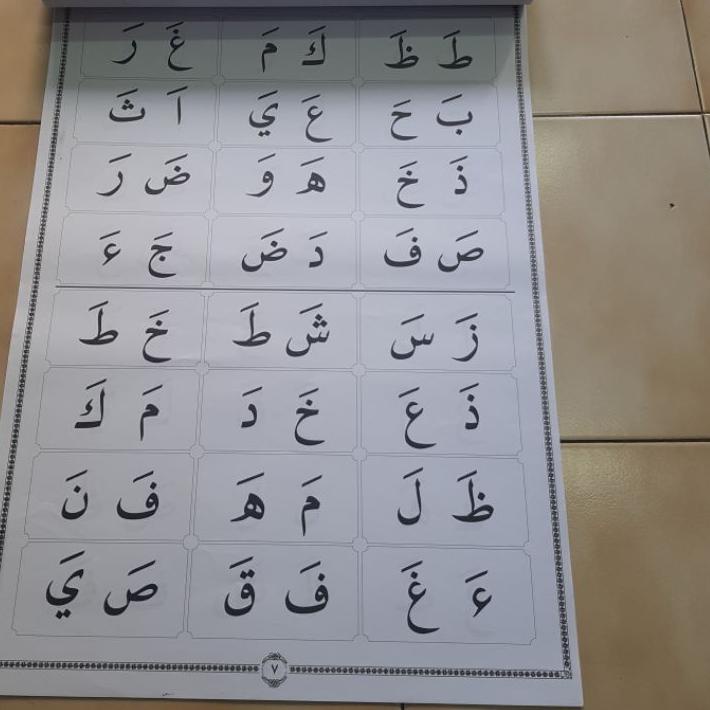 طَ ظَ كَ مَ غَ رَ
بَ حَ عَ يَ اَ ثَ
ذَ خَ هَ وَ ضَ رَ
صَ فَ دَ ضَ جَ ءَ
زَ سَ شَ طَ خَ طَ
ذَ عَ خَ دَ مَ كَ
ظَ لَ مَ هَ فَ نَ
ءَ غَ فَ قَ صَ يَ
٧